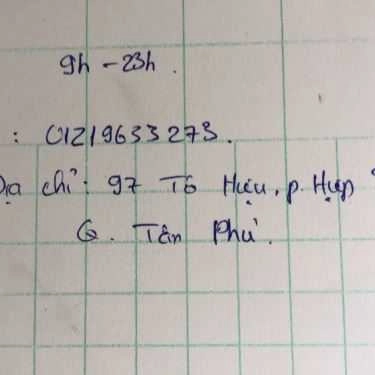 9h - 23h.
: 01219633273.
Địa chỉ: 97 Tô Hiệu, p. Hiệp
Q. Tân Phú.